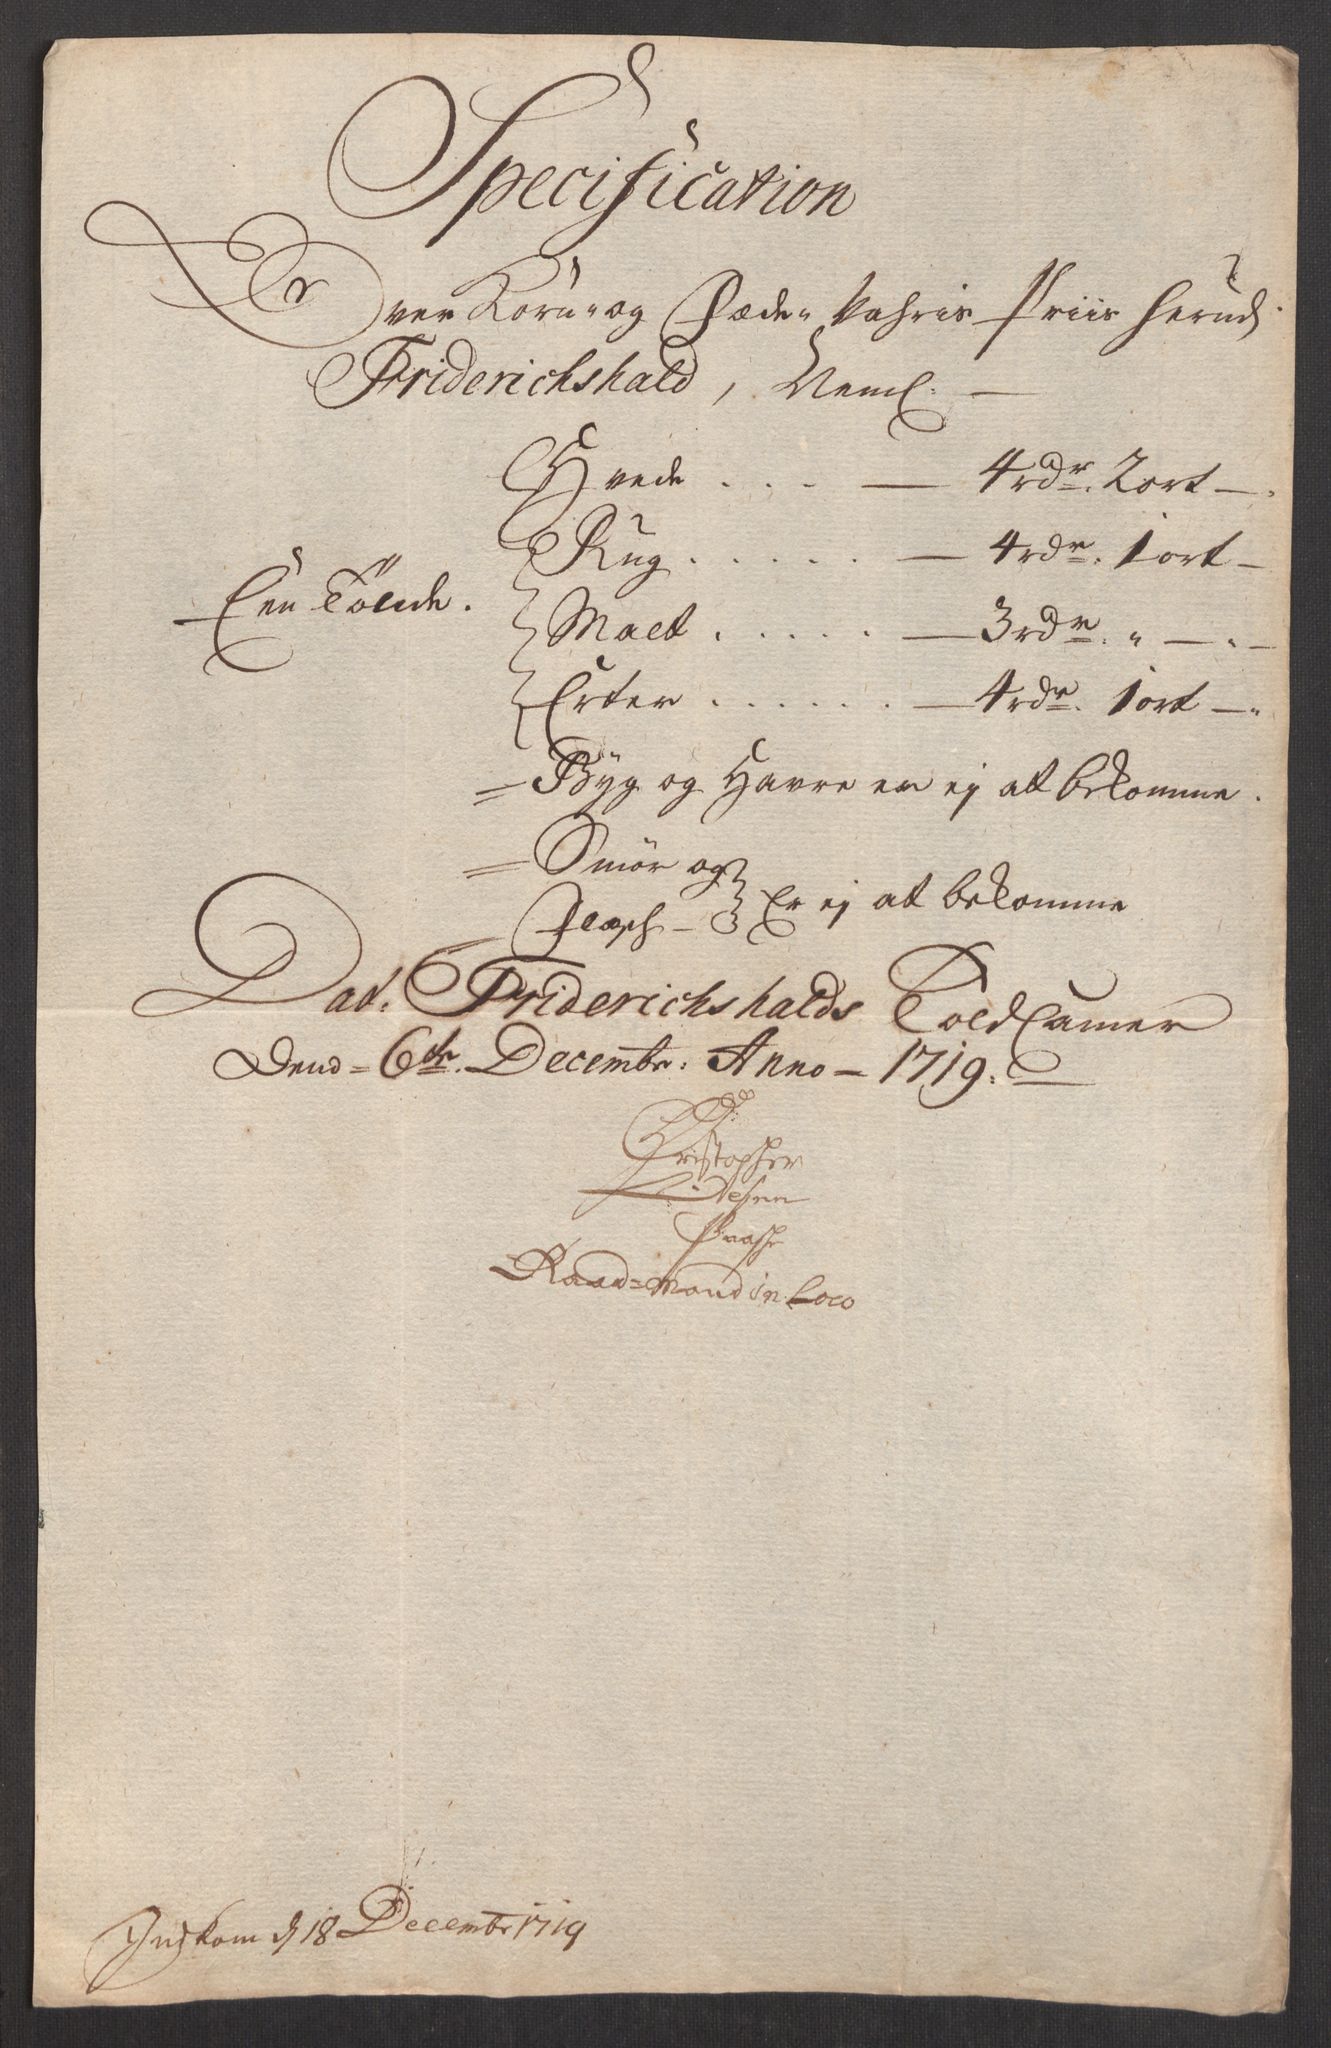 Specification
Over Korn- og Fæde Vahris Priis herud.
Friderichshald, Neml. —
Hvede . . . . — 4 rdr. 2 ort —
Rug . . . . . — 4 rdr. 1 ort —
Een Tönde.
Malt . . . . . — 3 rdr. " — " —
Erter . . . . . . — 4 rdr. 1 ort — "
= Byg og Havre er ej at bekomme.
= Smör og
Flesch — } Er ej at bekomme
Dat. Friderichshalds Told Camer
Dend = 6te. Decembr: Anno — 1719.
Christopher
Raad=Mand in Loco
Indkom d 18 Decembr 1719